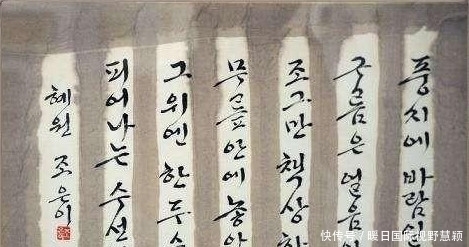 풍지에 바람
구들은 얼음
조그만 책상 하
무릎 앞에 놓아
그 위엔 한두
피어나는 수선
혜원 조은이
快传号 / 暖日国际视野慧颖